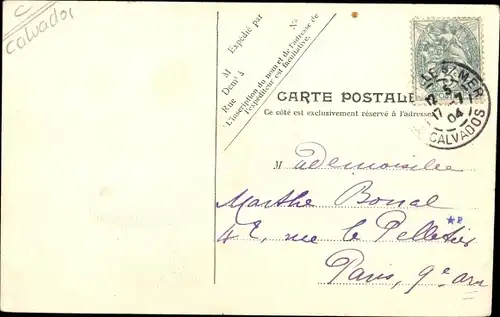 C
Calvados
Nº
Expédié par
M
Demt à
Rue
L'inscription du nom et de l'adresse de
l'expéditeur est facultative.
CARTE POSTALE
Ce côté est exclusivement réservé à l'adresse
S/MER
17-7
04
CALVADOS
Mademoiselle
Marthe Bonal
42, rue le Peletier
★P
Paris, 9e arr